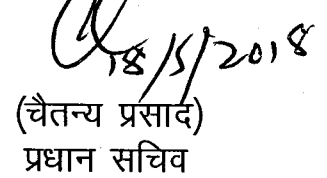 18/5/2018
(चैतन्य प्रसाद)
प्रधान सचिव